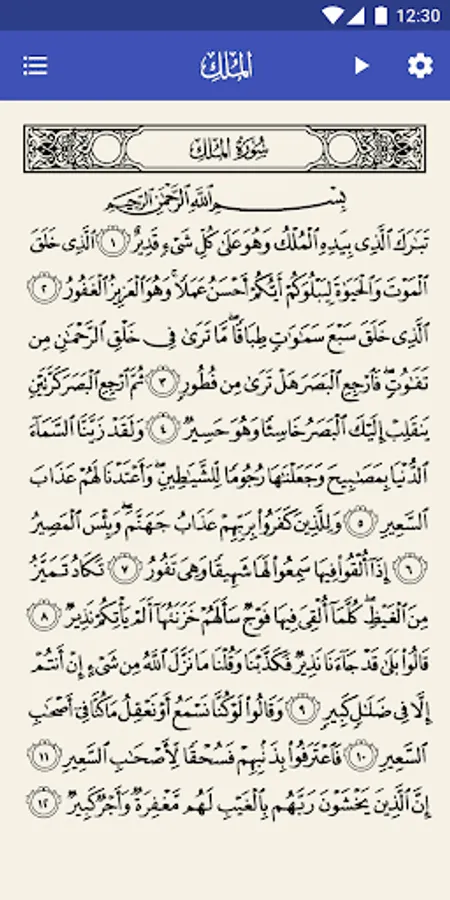 12:30
الملك
سُورَةُ المُلْكِ
بِسْمِ اللَّهِ الرَّحْمَٰنِ الرَّحِيمِ
تَبَارَكَ الَّذِي بِيَدِهِ الْمُلْكُ وَهُوَ عَلَىٰ كُلِّ شَيْءٍ قَدِيرٌ ١ الَّذِي خَلَقَ
الْمَوْتَ وَالْحَيَوٰةَ لِيَبْلُوَكُمْ أَيُّكُمْ أَحْسَنُ عَمَلًا ۚ وَهُوَ الْعَزِيزُ الْغَفُورُ ٢
الَّذِي خَلَقَ سَبْعَ سَمَاوَاتٍ طِبَاقًا ۖ مَا تَرَىٰ فِي خَلْقِ الرَّحْمَٰنِ مِن
تَفَاوُتٍ ۖ فَارْجِعِ الْبَصَرَ هَلْ تَرَىٰ مِن فُطُورٍ ٣ ثُمَّ ارْجِعِ الْبَصَرَ كَرَّتَيْنِ
يَنقَلِبْ إِلَيْكَ الْبَصَرُ خَاسِئًا وَهُوَ حَسِيرٌ ٤ وَلَقَدْ زَيَّنَّا السَّمَاءَ
الدُّنْيَا بِمَصَابِيحَ وَجَعَلْنَاهَا رُجُومًا لِّلشَّيَاطِينِ ۖ وَأَعْتَدْنَا لَهُمْ عَذَابَ
السَّعِيرِ ٥ وَلِلَّذِينَ كَفَرُوا بِرَبِّهِمْ عَذَابُ جَهَنَّمَ ۖ وَبِئْسَ الْمَصِيرُ
٦ إِذَا أُلْقُوا فِيهَا سَمِعُوا لَهَا شَهِيقًا وَهِيَ تَفُورُ ٧ تَكَادُ تَمَيَّزُ
مِنَ الْغَيْظِ ۖ كُلَّمَا أُلْقِيَ فِيهَا فَوْجٌ سَأَلَهُمْ خَزَنَتُهَا أَلَمْ يَأْتِكُمْ نَذِيرٌ ٨
قَالُوا بَلَىٰ قَدْ جَاءَنَا نَذِيرٌ فَكَذَّبْنَا وَقُلْنَا مَا نَزَّلَ اللَّهُ مِن شَيْءٍ إِنْ أَنتُمْ
إِلَّا فِي ضَلَالٍ كَبِيرٍ ٩ وَقَالُوا لَوْ كُنَّا نَسْمَعُ أَوْ نَعْقِلُ مَا كُنَّا فِي أَصْحَابِ
السَّعِيرِ ١٠ فَاعْتَرَفُوا بِذَنبِهِمْ فَسُحْقًا لِّأَصْحَابِ السَّعِيرِ ١١
إِنَّ الَّذِينَ يَخْشَوْنَ رَبَّهُم بِالْغَيْبِ لَهُم مَّغْفِرَةٌ وَأَجْرٌ كَبِيرٌ ١٢